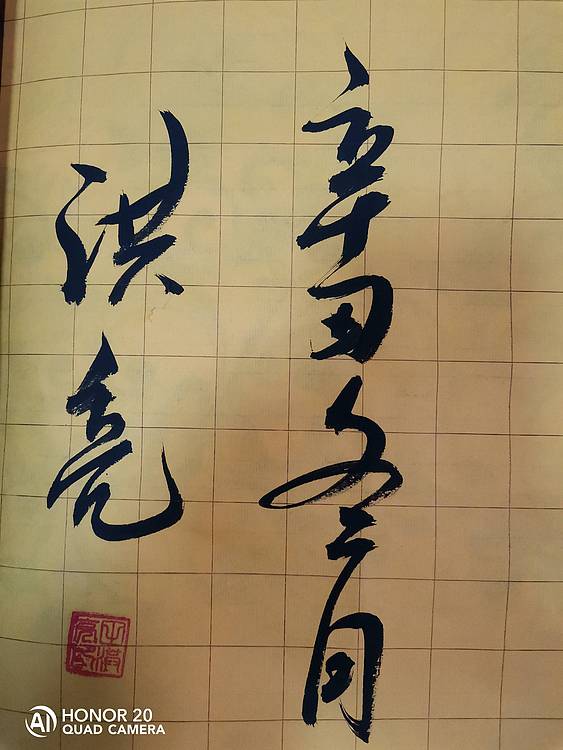 辛丑冬月
洪亮
AI HONOR 20
QUAD CAMERA